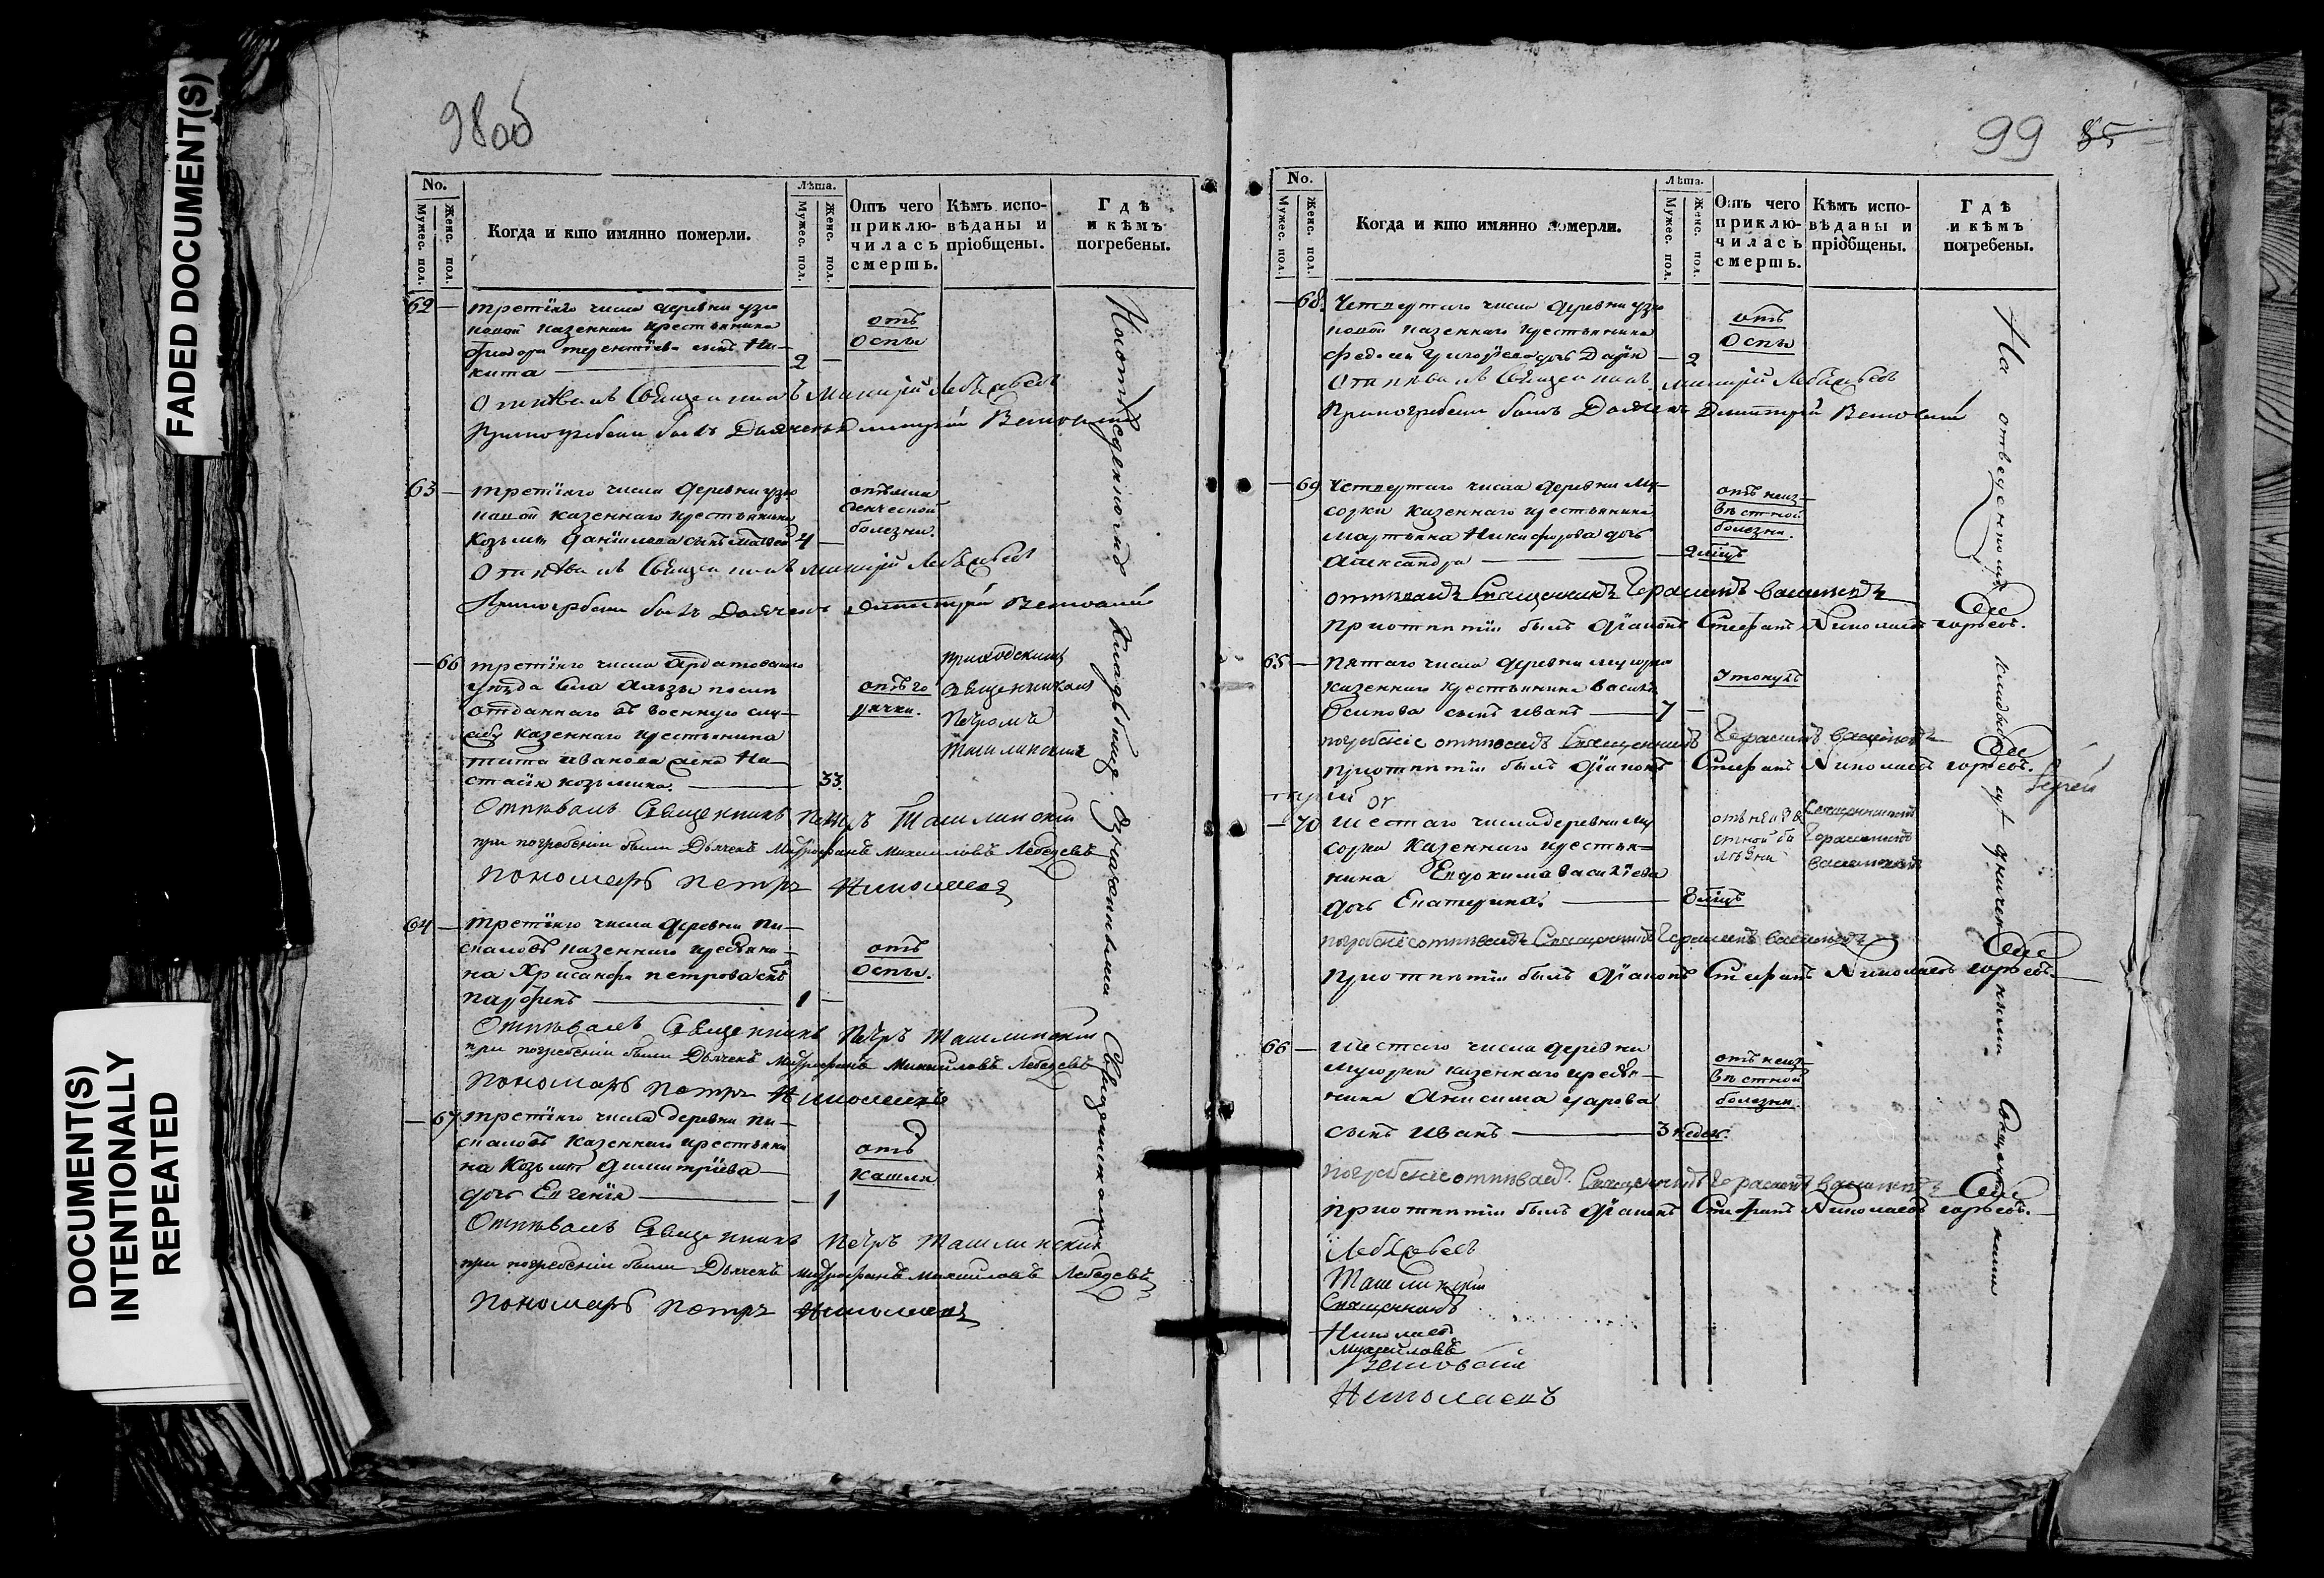 FADED DOCUMENT(S)
DOCUMENT(S)
INTENTIONALLY
REPEATED
98об
No.
Мужес. пол.
Женс. пол.
Когда и кто имянно померли.
Лѣта.
Мужес. пол.
Женс. пол.
Отъ чего
приклю-
чилась
смерть.
Кѣмъ испо-
вѣданы и
пріобщены.
Гдѣ
и кѣмъ
погребены.
62 — третїяго числа деревни узю
ковой казеннаго крестьянина
Феодора терентїева сынъ Ни-
кита — 2 —
отъ
оспы
Отпѣвалъ Священникъ Лебедевъ
При погребени былъ Дьячекъ Дмитрїй
63 — третїяго числа деревни узю
ковой казеннаго крестьянина
Козьмы данїилова сынъ Матвей 4 —
отъ мла
денческой
болезни.
Отпѣвалъ Священникъ Лебедевъ
При погребени былъ Дьячекъ Дмитрїй
— 66 третїяго числа Ардатовскаго
уѣзда села
отданнаго въ военную слу-
жбу казеннаго крестьянина
тита иванова жена На-
стасїя козьмина. — 33.
отъ го
рячки.
приходскимъ
священникомъ
Петромъ
Ташлинскимъ
Отпѣвалъ Священникъ Петръ Ташлинскїй
при погребенїи были Дьячекъ Митрофанъ Михаиловъ Лебедевъ
пономарь петръ Николаевъ
64 — третїяго числа деревни Пи-
скаловъ казеннаго крестьяни-
на Хрисанфа петрова сынъ
парфенъ — 1 —
отъ
оспы.
Отпѣвалъ Священникъ Петръ Ташлинскїй
при погребенїи были Дьячекъ Митрофанъ Михаиловъ Лебедевъ
пономарь петръ Николаевъ
— 67 третїяго числа деревни Пи-
скаловъ казеннаго крестьяни
на Козьмы димитрїева
дочь Евгенїя — 1
отъ
кашля
Отпѣвалъ Священникъ Петръ Ташлинскїй
при погребенїи были Дьячекъ Митрофанъ Михаиловъ Лебедевъ
пономарь петръ Николаевъ
На отведенномъ кладбище означенными Священниками
99 85
No.
Мужес. пол.
Женс. пол.
Когда и кто имянно померли.
Лѣта.
Мужес. пол.
Женс. пол.
Отъ чего
приклю-
чилась
смерть.
Кѣмъ испо-
вѣданы и
пріобщены.
Гдѣ
и кѣмъ
погребены.
— 68. Четвертаго числа деревни узю
ковой казеннаго крестьянина
федосея григорїева дочь Дарїя — 2
отъ
оспы
Отпѣвалъ Священникъ Лебедевъ
При погребени былъ Дьячекъ Дмитрїй
— 69 Четвертаго числа деревни Му-
сорки казеннаго крестьянина
мартына Никифорова дочь
Александра — 2 мѣцъ
отъ неиз-
вѣстной
болезни.
отпѣвалъ Священникъ Герасимъ
при отпѣтїи былъ Дїаконъ Стефанъ Николаевъ
65 — Пятаго числа деревни мусорки
казеннаго крестьянина Василїя
Осипова сынъ иванъ — 7 —
Утонулъ
погребенїе отпѣвалъ Священникъ Герасимъ
при отпѣтїи былъ Дїаконъ Стефанъ Николаевъ
— 70 шестаго числа деревни Му
сорки казеннаго крестья-
нина Евдокима васильева
дочь Екатерина. — 8 мѣцъ
отъ неизвѣ
стной бо
лѣзни
Священникомъ
Герасимомъ
погребенїе отпѣвалъ Священникъ Герасимъ
при отпѣтїи былъ Дїаконъ Стефанъ Николаевъ
66 — шестаго числа деревни
мусорки казеннаго крестья-
нина Анисима
сынъ иванъ — 3 недел.
отъ неиз-
вѣстной
болезни.
погребенїе отпѣвалъ Священникъ Герасимъ
при отпѣтїи былъ Дїаконъ Стефанъ Николаевъ
Лебедевъ
Ташлинскїй
Священникъ
Николаевъ
Михаиловъ
Николаевъ
На отведенномъ кладбище означенными Священниками